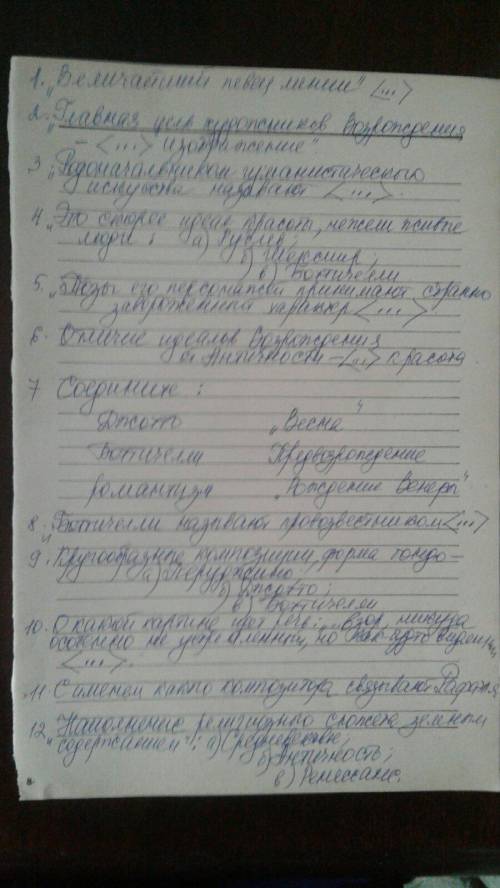 1. „Величайший певец линии" <...>
2. „Главная цель художников Возрождения
– <...> изображение"
3. „Родоначальником гуманистического
искусства называют <...>.
4. „Это скорее идеал красоты, нежели живые
люди": а) Рублев;
б) Шекспир;
в) Боттичелли
5. „Позы его персонажей принимают странно
завороженный характер <...>
6. Отличие идеалов Возрождения
от Античности – <...> красота.
7 Соедините:
Джотто „Весна"
Боттичелли Предвозрождение
романтизм „Рождение Венеры"
8. „Боттичелли называют провозвестником <...>
9. Кругообразные композиции, форма тондо –
а) Перуджино
б) Джотто;
в) Боттичелли
10. О какой картине идет речь: „Взор, никуда
особенно не устремленный, но как будто видений,
<...>.
11. С именем какого композитора связывают Рафаэля
12. „Наполнение религиозного сюжета земным
содержанием": а) Средневековье;
б) Античность;
в) Ренессанс.